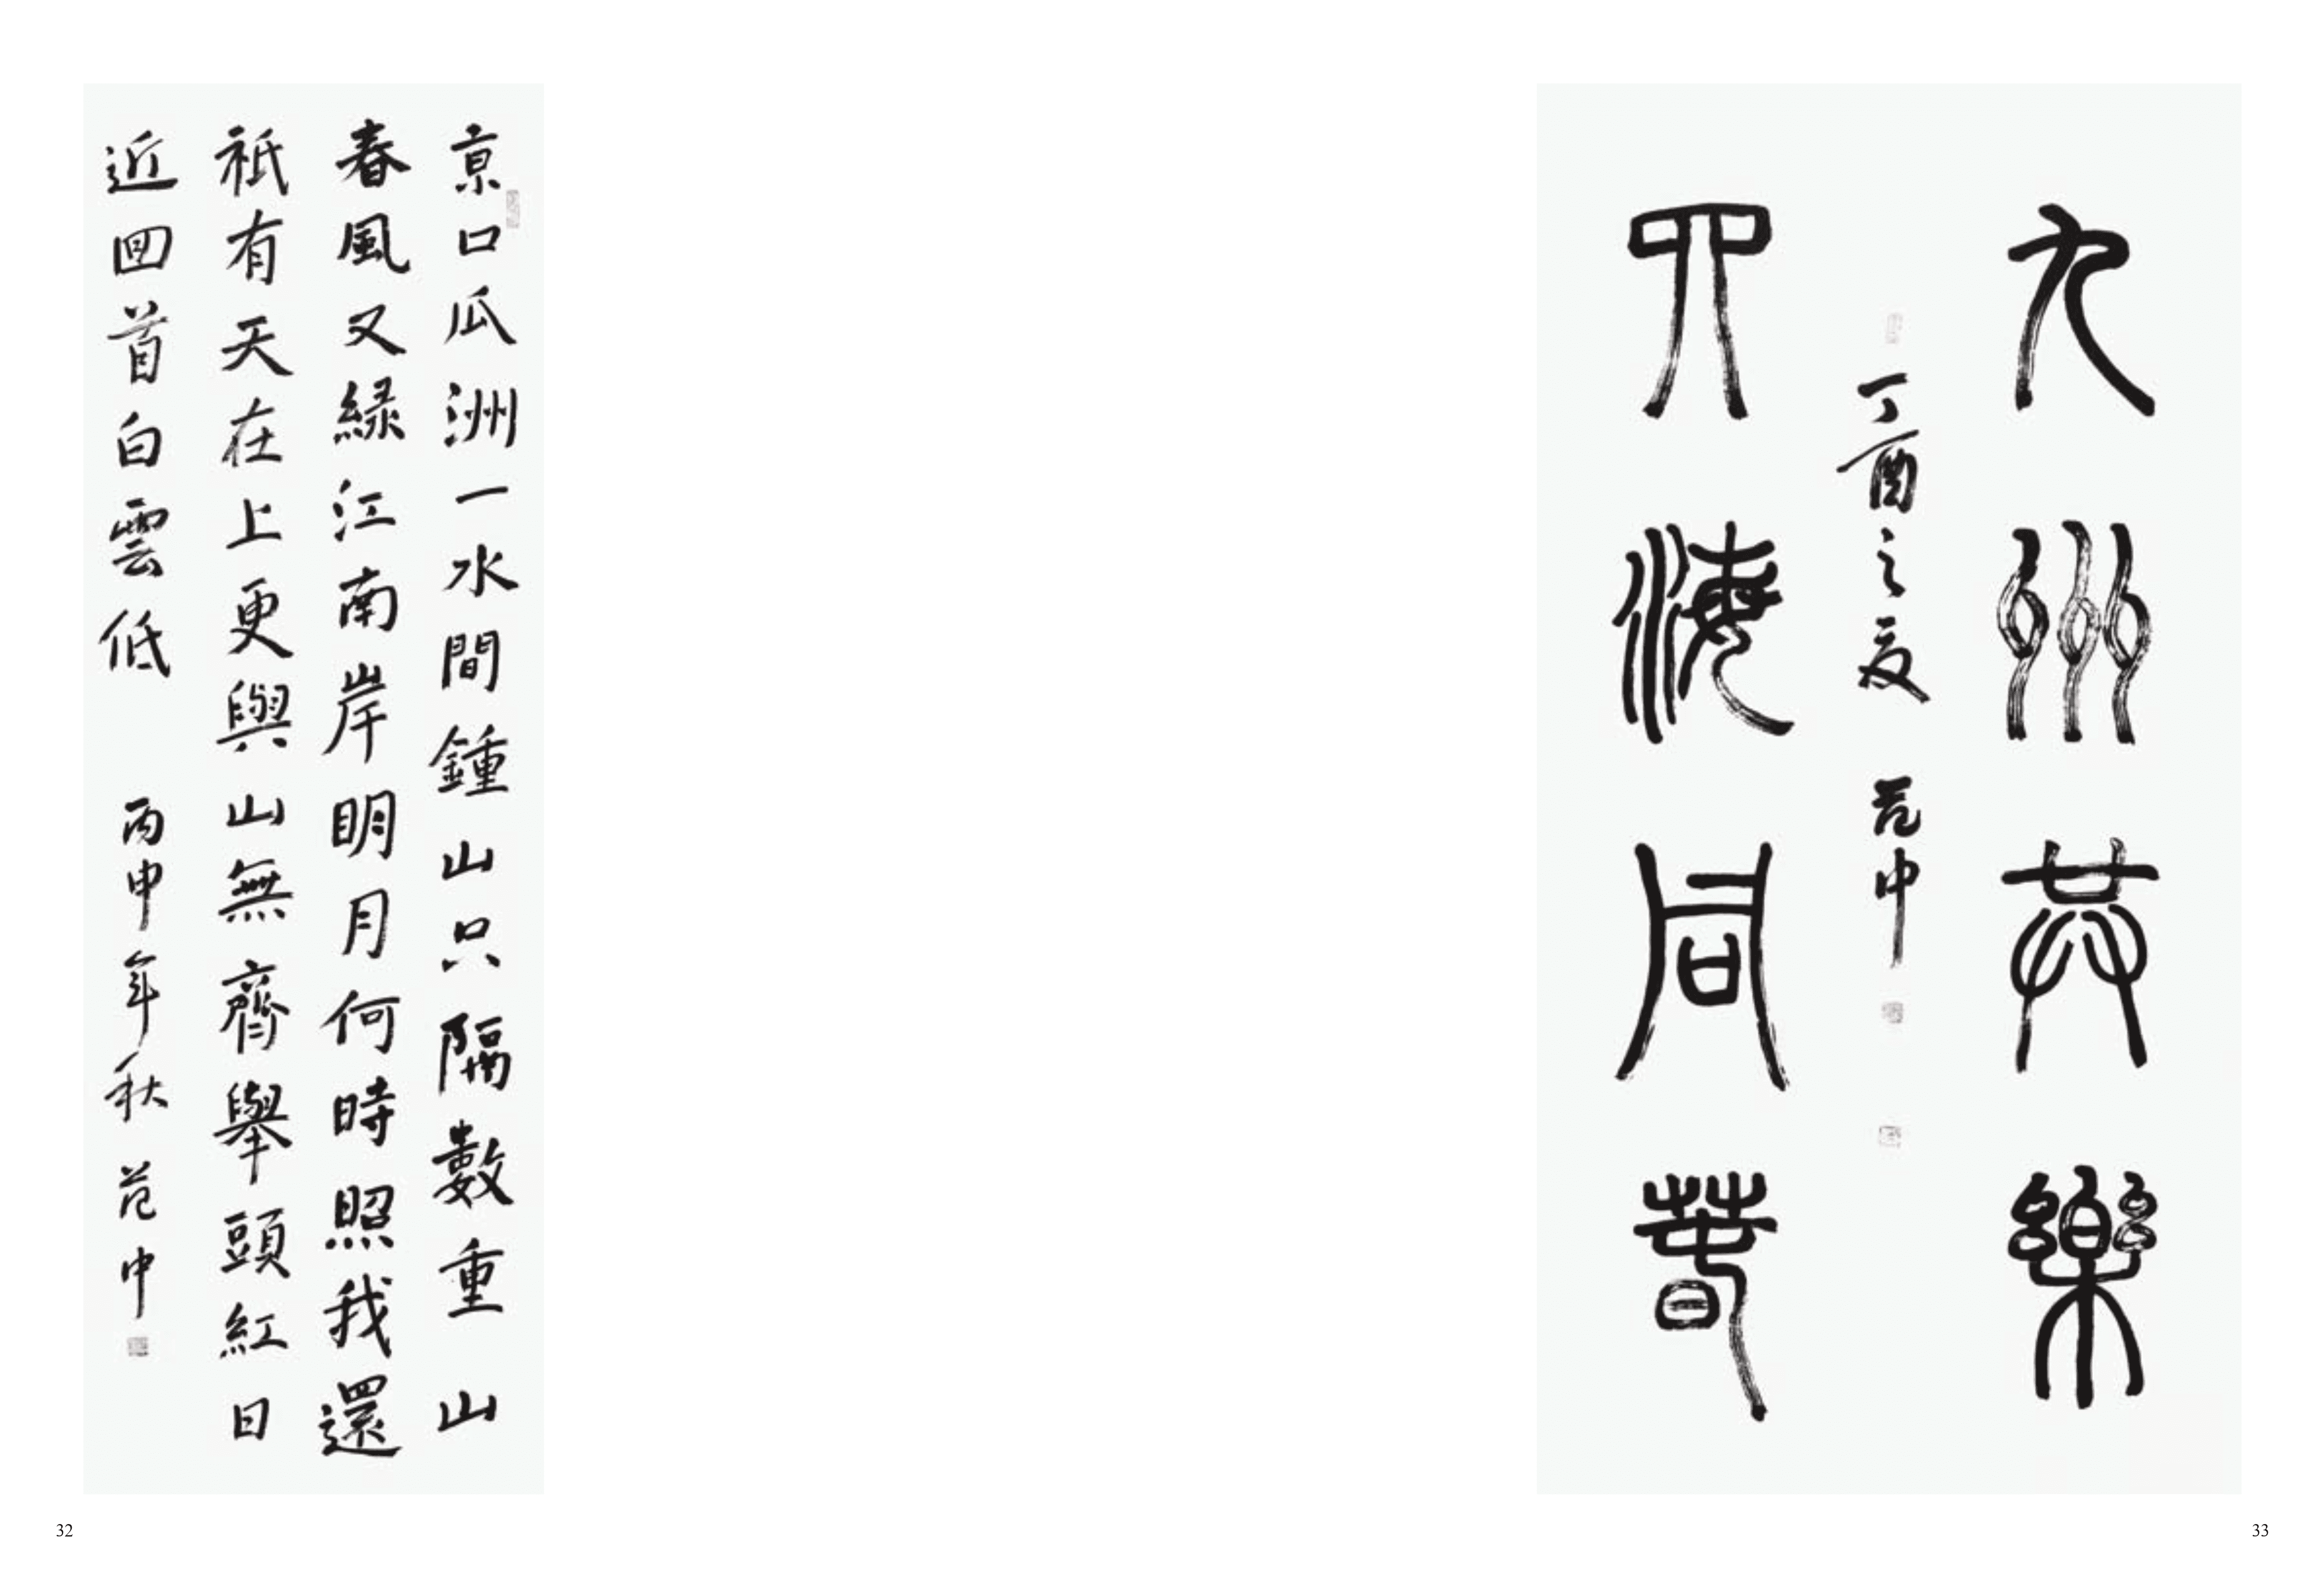 京口瓜洲一水間鍾山只隔數重山
春風又緑江南岸明月何時照我還
祇有天在上更與山無齊舉頭紅日
近回首白雲低 丙申年秋 范中
32
九州共樂
四海同春
丁酉之夏 范中
33